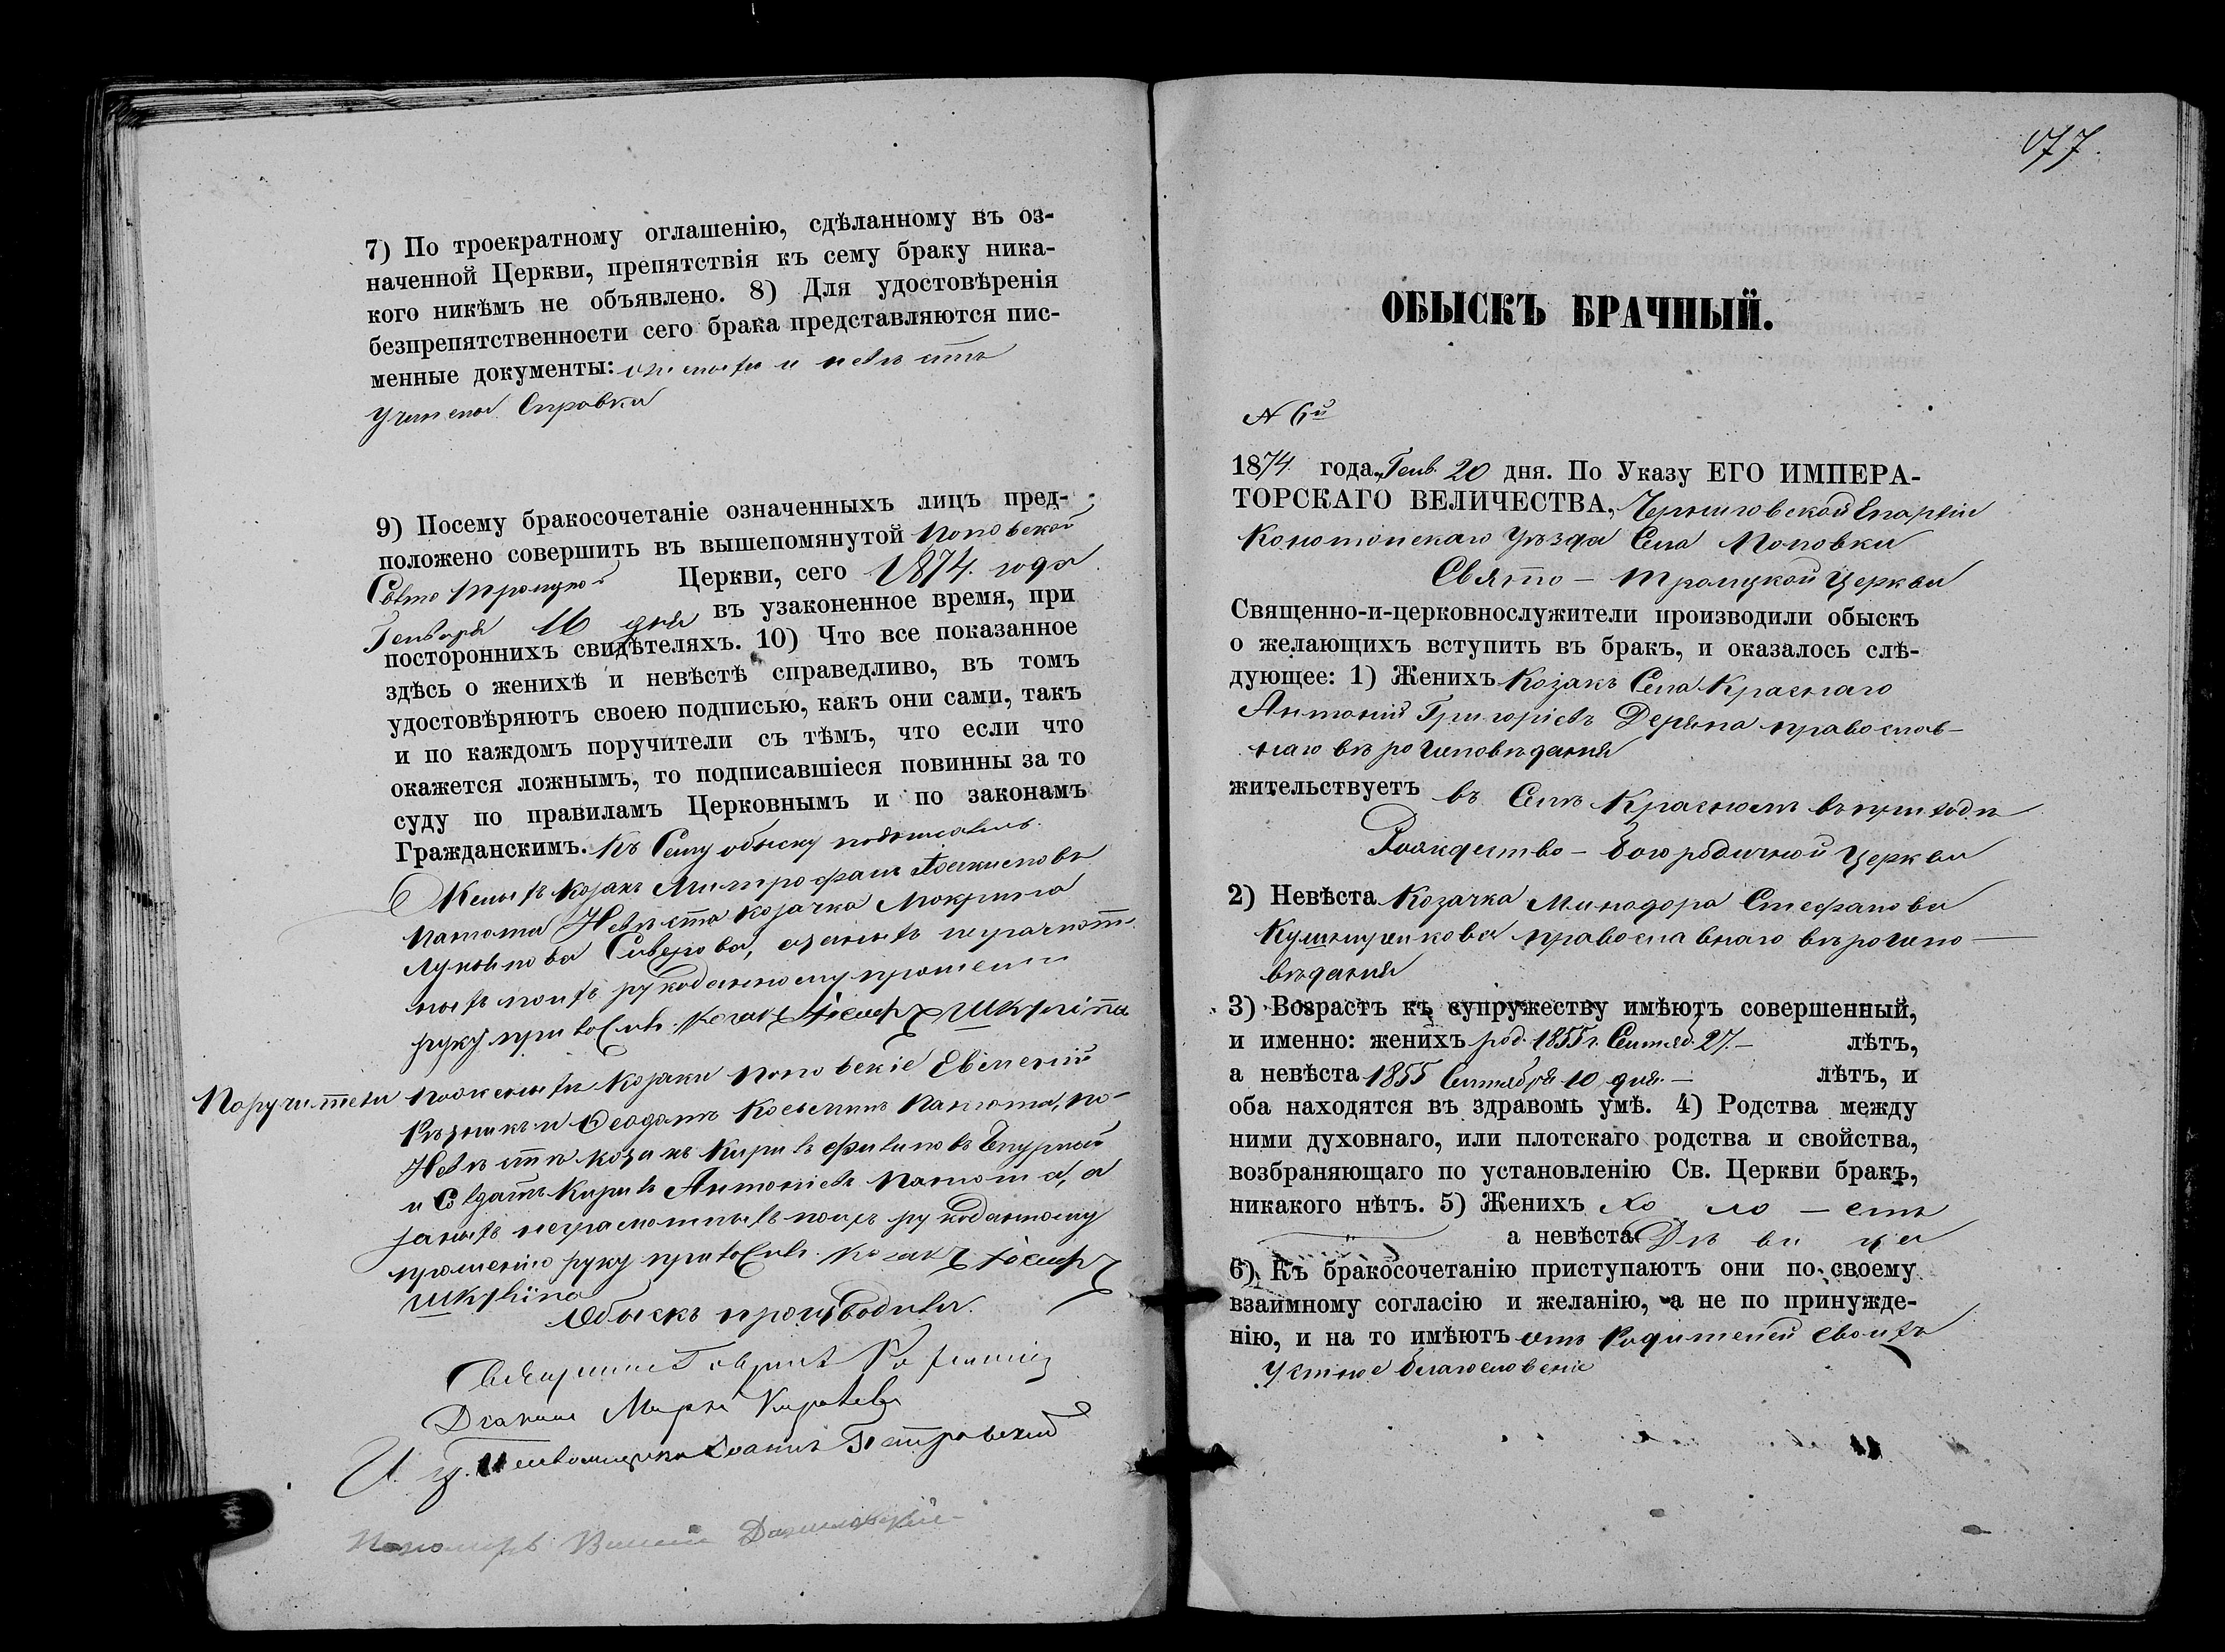 7) По троекратному оглашенію, сдѣланному въ оз-
наченной Церкви, препятствія къ сему браку ника-
кого никѣмъ не объявлено. 8) Для удостовѣренія
безпрепятственности сего брака представляются пис-
менные документы: и невѣстѣ
Справка
9) Посему бракосочетаніе означенныхъ лицъ пред-
положено совершить въ вышепомянутой Поповской
Свято Троицкой Церкви, сего 1874. года
Генваря 16 дня въ узаконенное время, при
постороннихъ свидѣтеляхъ. 10) Что все показанное
здѣсь о женихѣ и невѣстѣ справедливо, въ томъ
удостовѣряютъ своею подписью, какъ они сами, такъ
и по каждомъ поручители съ тѣмъ, что если что
окажется ложнымъ, то подписавшіеся повинны за то
суду по правиламъ Церковнымъ и по законамъ
Гражданскимъ. Къ Сему обыску подписались
Женихъ козакъ Митрофанъ
Невѣста козачка Мокрина
неграмот-
ныхъ поихъ рукоданному прошенію
руку приложилъ козакъ Іосифъ Шкуліпа
Поручители по женихѣ козаки Поповскіе Евгеній
и Феодотъ Пануша, по
Невѣстѣ козакъ Кирилъ Филиповъ
и Солдатъ Кирилъ Антоніевъ а
за нихъ неграмотныхъ поихъ рукоданному
прошенію руку приложилъ козакъ Іосифъ
Шкуліпа
Обыскъ производили
Священникъ
Діаконъ Марко
И. д. Псаломщика Іоаннъ Петровскій
Пономарь
077.
ОБЫСКЪ БРАЧНЫЙ.
N 6й
1874. года, Генв. 20 дня. По Указу ЕГО ИМПЕРА-
ТОРСКАГО ВЕЛИЧЕСТВА, Черниговской Епархіи
Конотопскаго Уѣзда Села Поповки
Свято - Троицкой Церкви
Священно-и-церковнослужители производили обыскъ
о желающихъ вступить въ бракъ, и оказалось слѣ-
дующее: 1) Женихъ Козакъ Села Краснаго
Антоній Григоріевъ Деряпа православ-
наго вѣроисповѣданія
жительствуетъ въ Селѣ Красномъ въ приходѣ
Рождество - Богородичной Церкви
2) Невѣста Козачка Минодора Стефанова
православнаго вѣроиспо-
вѣданія
3) Возрастъ къ супружеству имѣютъ совершенный,
и именно: женихъ род. 1855 г. Сентяб. 27. - лѣтъ,
а невѣста 1855 Сентября 10 дня. - лѣтъ, и
оба находятся въ здравомъ умѣ. 4) Родства между
ними духовнаго, или плотскаго родства и свойства,
возбраняющаго по установленію Св. Церкви бракъ,
никакого нѣтъ. 5) Женихъ Хо ло - стъ
а невѣста Дѣ ви ца
6) Къ бракосочетанію приступаютъ они по своему
взаимному согласію и желанію, а не по принужде-
нію, и на то имѣютъ отъ Родителей своихъ
Устное благословеніе